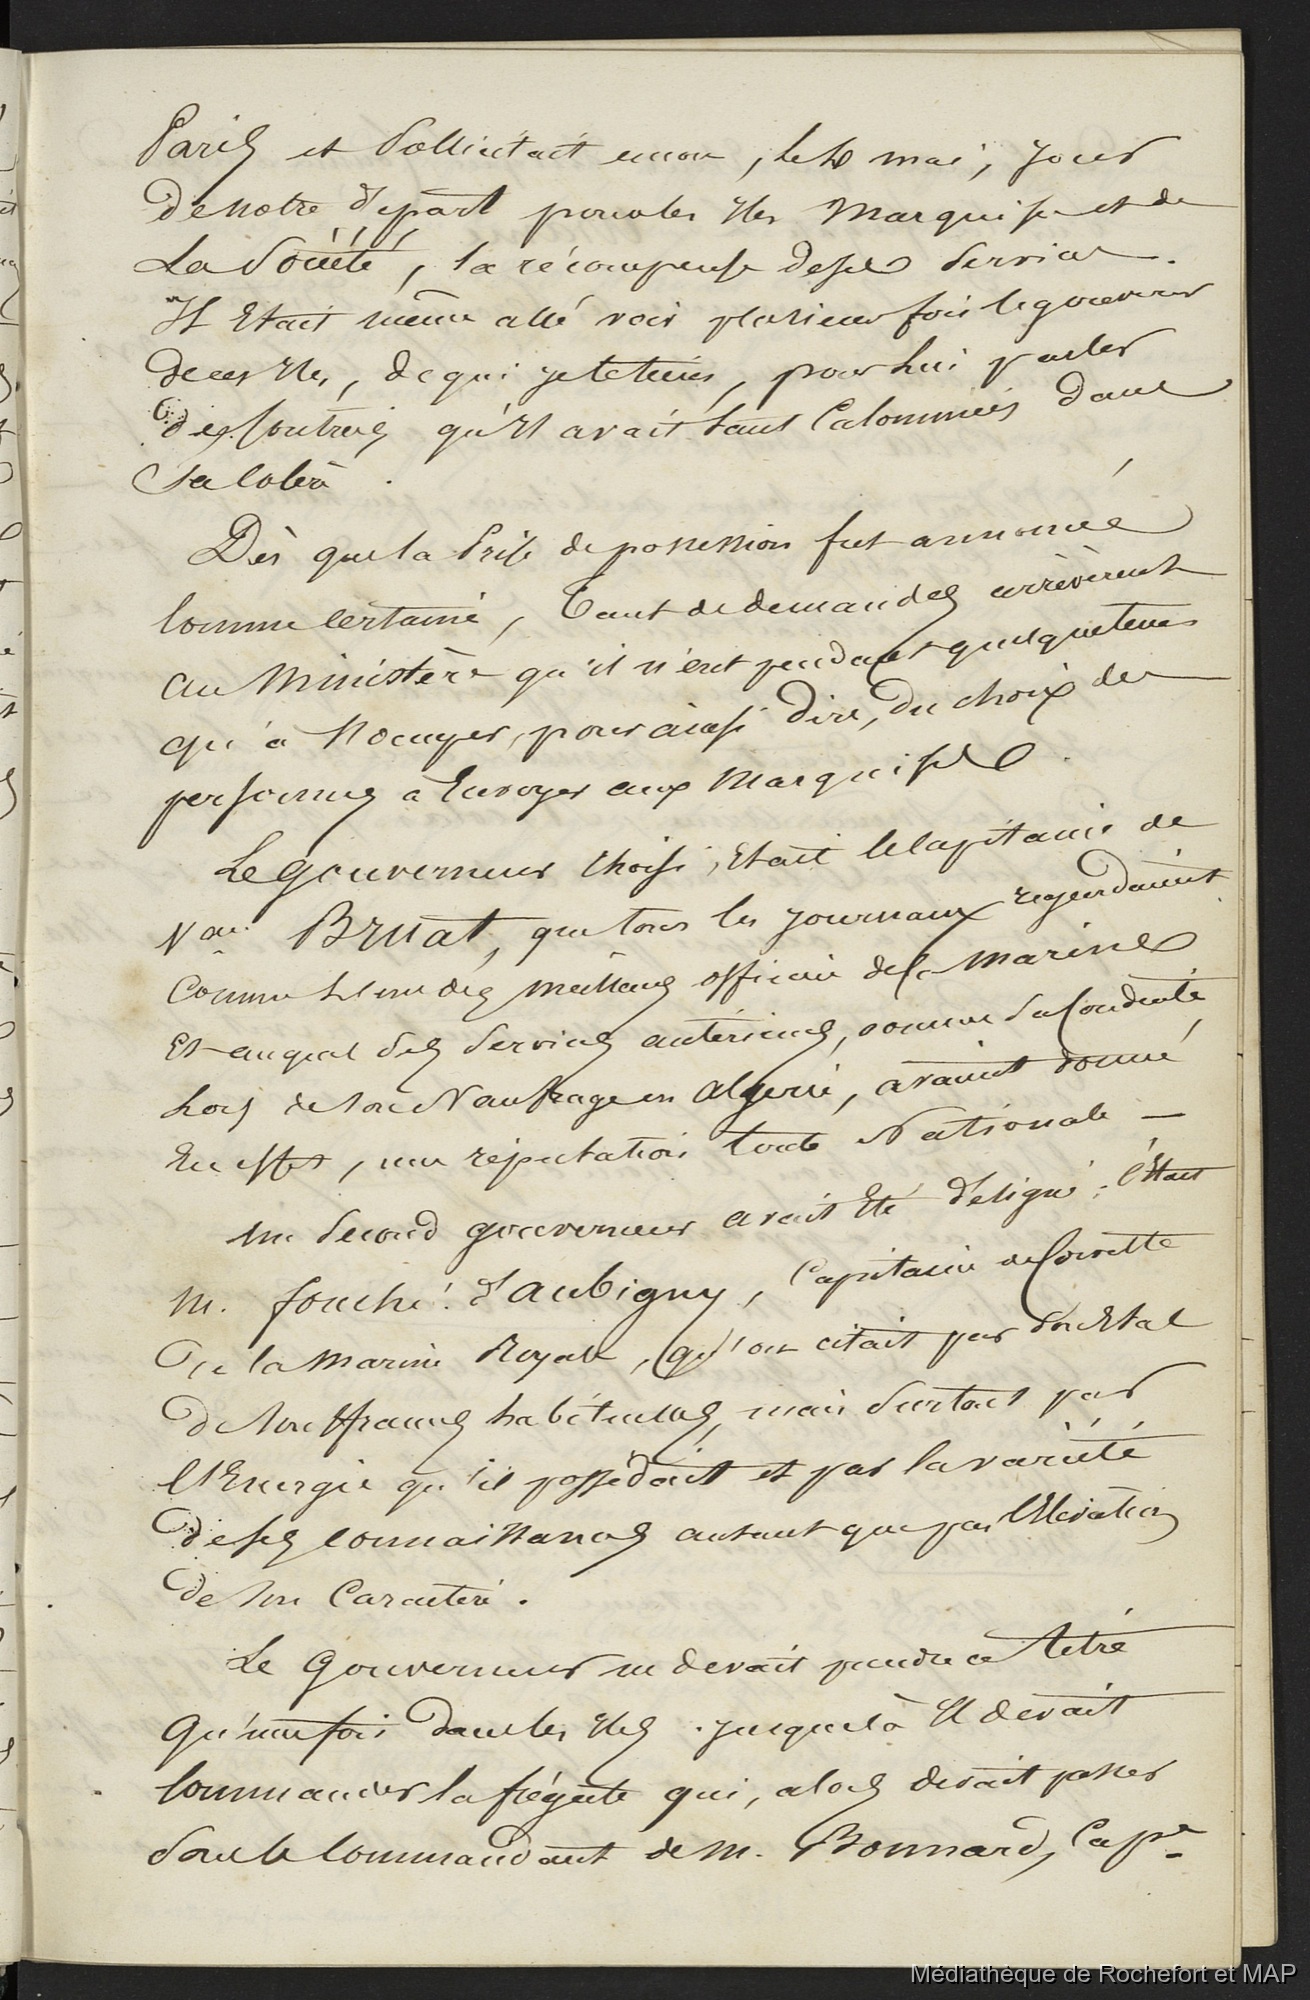 Paris et sollicitait encore, le mai, jour
de notre départ pour les Iles Marquises et de
La Société, la récompense de ses services.
Il Etait même allé voir plusieurs fois le gouverneur
de ces Iles, de qui je le tiens, pour lui parler
des contrées qu'Il avait tant Calomniées dans
sa colère.
Dès que la Prise de possession fut annoncée
Comme Certaine, Tant de demandes arrivèrent
au Ministère qu'il n'eut pendant quelque temps
qu'à s'occuper, pour ainsi dire, du choix des
personnes à Envoyer aux Marquises.
Le gouverneur choisi, Etait le Capitaine de
Vau Bruat, que tous les journaux regardaient
Comme l'un des meilleurs officiers de la Marine
Et auquel des services antérieurs, comme sa Conduite
lors de son Naufrage en Algérie, avaient donné
En effet, une réputation toute Nationale —
Un second gouverneur avait Eté désigné; C'Etait
M. Fouché d'Aubigny, Capitaine de Corvette
De la Marine Royale, qu'on citait par son Etat
De souffrances habituelles, mais surtout par
l'Energie qu'il possédait et par la variété
de ses connaissances autant que par l'Elévation
de son Caractère.
Le Gouverneur ne devait prendre ce titre
Qu'une fois dans les Iles. jusque là Il devait
Commander la frégate qui, alors devait passer
sous le Commandant de M. Bonnard, Cape
Médiathèque de Rochefort et MAP